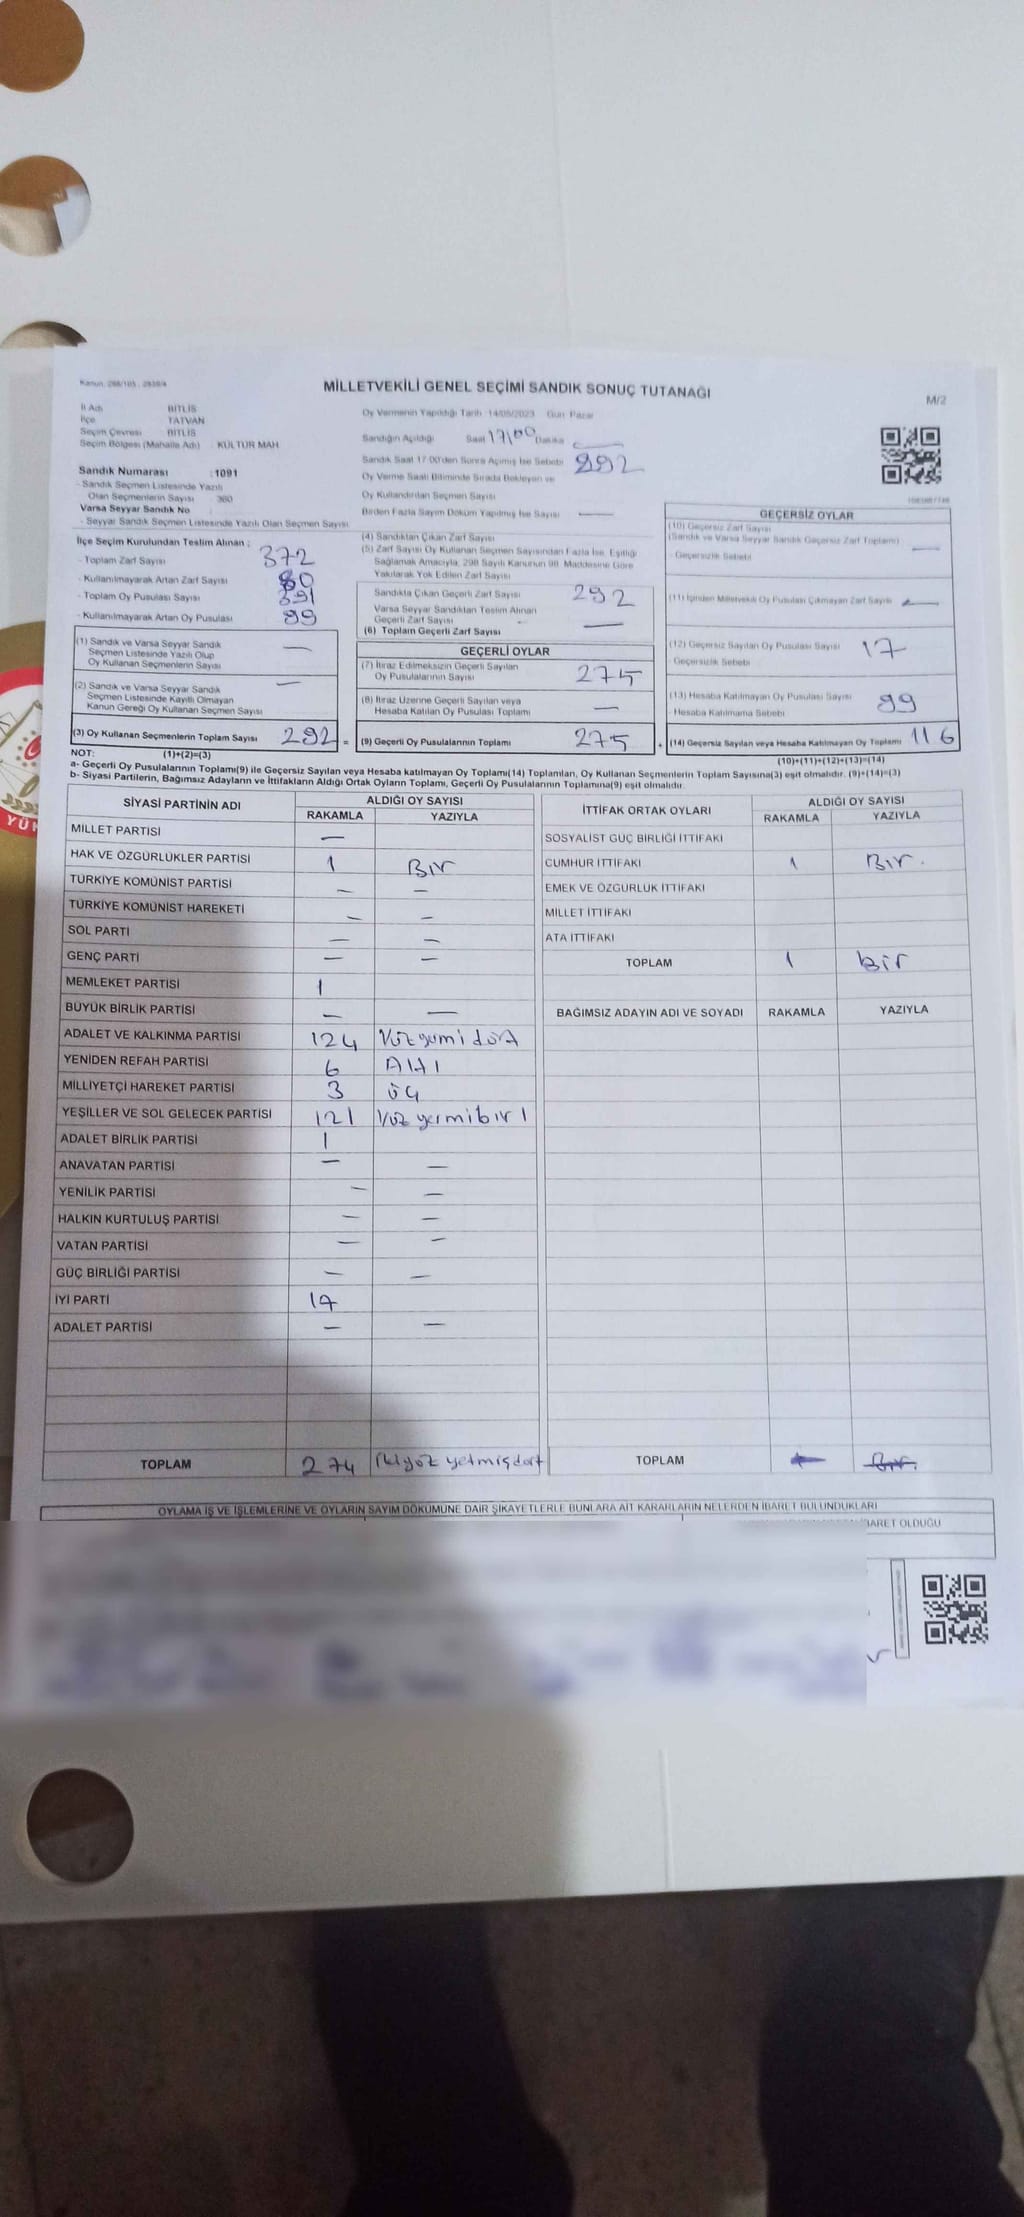 Kanun: 298/105 , 2839/4
MİLLETVEKİLİ GENEL SEÇİMİ SANDIK SONUÇ TUTANAĞI
M/2
İl Adı BİTLİS
İlçe TATVAN
Seçim Çevresi BİTLİS
Seçim Bölgesi (Mahalle Adı) : KÜLTÜR MAH.
Sandık Numarası : 1091
- Sandık Seçmen Listesinde Yazılı
Olan Seçmenlerin Sayısı : 360
Varsa Seyyar Sandık No
- Seyyar Sandık Seçmen Listesinde Yazılı Olan Seçmen Sayısı
İlçe Seçim Kurulundan Teslim Alınan :
- Toplam Zarf Sayısı 372
- Kullanılmayarak Artan Zarf Sayısı 80
- Toplam Oy Pusulası Sayısı 391
- Kullanılmayarak Artan Oy Pusulası 99
(1) Sandık ve Varsa Seyyar Sandık
Seçmen Listesinde Yazılı Olup
Oy Kullanan Seçmenlerin Sayısı —
(2) Sandık ve Varsa Seyyar Sandık
Seçmen Listesinde Kayıtlı Olmayan
Kanun Gereği Oy Kullanan Seçmen Sayısı —
(3) Oy Kullanan Seçmenlerin Toplam Sayısı 292 =
(1)+(2)=(3)
Oy Vermenin Yapıldığı Tarih 14/05/2023 Gün Pazar
Sandığın Açıldığı Saat 17/00 Dakika
Sandık Saat 17:00'den Sonra Açılmış İse Sebebi 292
Oy Verme Saati Bitiminde Sırada Bekleyen ve
Oy Kullandırılan Seçmen Sayısı
Birden Fazla Sayım Döküm Yapılmış İse Sayısı —
(4) Sandıktan Çıkan Zarf Sayısı
(5) Zarf Sayısı Oy Kullanan Seçmen Sayısından Fazla İse, Eşitliği
Sağlamak Amacıyla, 298 Sayılı Kanunun 98. Maddesine Göre
Yakılarak Yok Edilen Zarf Sayısı
Sandıkta Çıkan Geçerli Zarf Sayısı 292
Varsa Seyyar Sandıktan Teslim Alınan
Geçerli Zarf Sayısı —
(6) Toplam Geçerli Zarf Sayısı
GEÇERLİ OYLAR
(7) İtiraz Edilmeksizin Geçerli Sayılan
Oy Pusulalarının Sayısı 275
(8) İtiraz Üzerine Geçerli Sayılan veya
Hesaba Katılan Oy Pusulası Toplamı —
(9) Geçerli Oy Pusulalarının Toplamı 275 +
GEÇERSİZ OYLAR
(10) Geçersiz Zarf Sayısı
(Sandık ve Varsa Seyyar Sandık Geçersiz Zarf Toplamı) —
- Geçersizlik Sebebi
(11) İçinden Milletvekili Oy Pusulası Çıkmayan Zarf Sayısı —
(12) Geçersiz Sayılan Oy Pusulası Sayısı 17
Geçersizlik Sebebi
(13) Hesaba Katılmayan Oy Pusulası Sayısı 99
- Hesaba Katılmama Sebebi
(14) Geçersiz Sayılan veya Hesaba Katılmayan Oy Toplamı 116
(10)+(11)+(12)+(13)=(14)
NOT:
a- Geçerli Oy Pusulalarının Toplamı(9) ile Geçersiz Sayılan veya Hesaba katılmayan Oy Toplamı(14) Toplamları, Oy Kullanan Seçmenlerin Toplam Sayısına(3) eşit olmalıdır. (9)+(14)=(3)
b- Siyasi Partilerin, Bağımsız Adayların ve İttifakların Aldığı Ortak Oyların Toplamı, Geçerli Oy Pusulalarının Toplamına(9) eşit olmalıdır.
SİYASİ PARTİNİN ADI
ALDIĞI OY SAYISI
RAKAMLA YAZIYLA
MİLLET PARTİSİ —
HAK VE ÖZGÜRLÜKLER PARTİSİ 1 Bir
TÜRKİYE KOMÜNİST PARTİSİ — —
TÜRKİYE KOMÜNİST HAREKETİ — —
SOL PARTİ — —
GENÇ PARTİ — —
MEMLEKET PARTİSİ 1
BÜYÜK BİRLİK PARTİSİ — —
ADALET VE KALKINMA PARTİSİ 124 Yüzyirmi dört
YENİDEN REFAH PARTİSİ 6 Altı
MİLLİYETÇİ HAREKET PARTİSİ 3 üç
YEŞİLLER VE SOL GELECEK PARTİSİ 121 Yüz yirmibir 1
ADALET BİRLİK PARTİSİ 1
ANAVATAN PARTİSİ — —
YENİLİK PARTİSİ — —
HALKIN KURTULUŞ PARTİSİ — —
VATAN PARTİSİ — —
GÜÇ BİRLİĞİ PARTİSİ — —
İYİ PARTİ 17
ADALET PARTİSİ — —
TOPLAM 274 İkiyüz yetmişdört
İTTİFAK ORTAK OYLARI
ALDIĞI OY SAYISI
RAKAMLA YAZIYLA
SOSYALİST GÜÇ BİRLİĞİ İTTİFAKI
CUMHUR İTTİFAKI 1 Bir.
EMEK VE ÖZGÜRLÜK İTTİFAKI
MİLLET İTTİFAKI
ATA İTTİFAKI
TOPLAM 1 Bir
BAĞIMSIZ ADAYIN ADI VE SOYADI RAKAMLA YAZIYLA
TOPLAM
OYLAMA İŞ VE İŞLEMLERİNE VE OYLARIN SAYIM DÖKÜMÜNE DAİR ŞİKAYETLERLE BUNLARA AİT KARARLARIN NELERDEN İBARET BULUNDUKLARI
İBARET OLDUĞU
YÜK